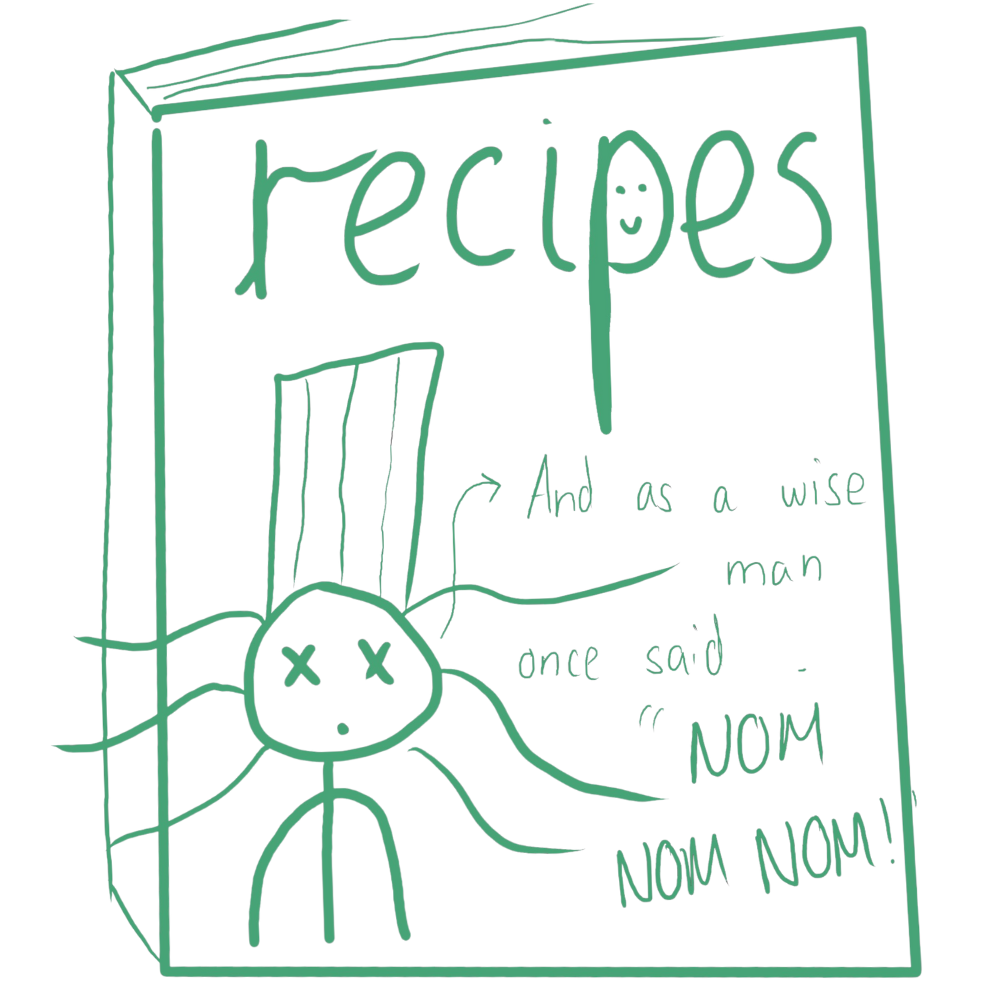 recipes
And as a wise
man
once said -
"NOM
NOM NOM!'